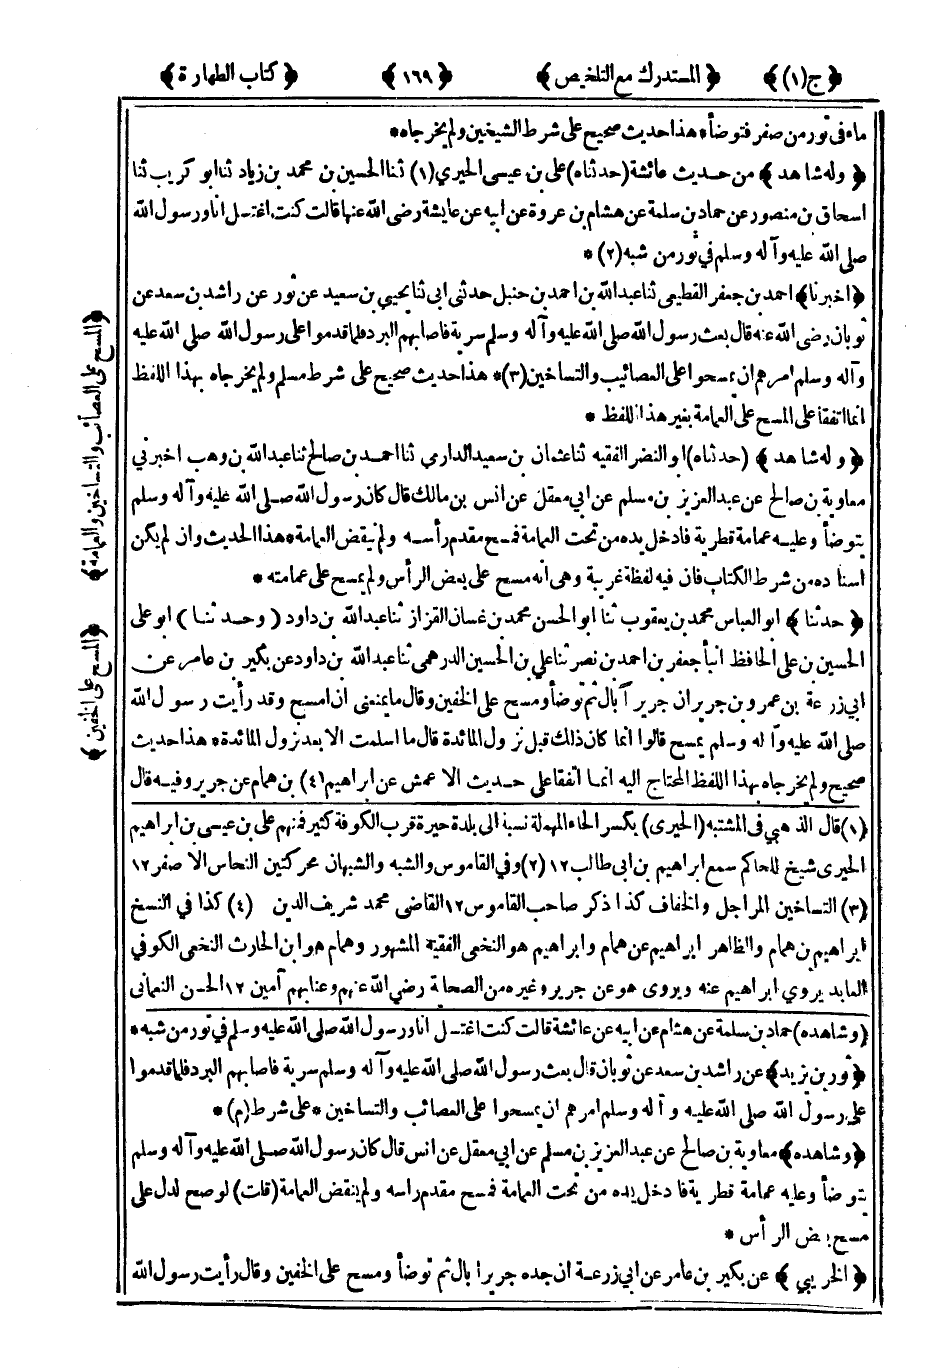 ﴿ ج (١) ﴾ ﴿ المستدرك مع التلخيص ﴾ ﴿ ١٦٩ ﴾ ﴿ كتاب الطهارة ﴾
ماء فى تور من صفر فتوضأ * هذا حديث صحيح على شرط الشيخين ولم يخرجاه *
﴿ وله شاهد ﴾ من حديث عائشة (حدثناه) على بن عيسى الحيري (١) ثنا الحسين بن محمد بن زياد ثنا ابو كريب ثنا
اسحاق بن منصور عن حماد بن سلمة عن هشام بن عروة عن ابيه عن عايشة رضى الله عنها قالت كنت اغتسل انا ورسول الله
صلى الله عليه وآله وسلم في تور من شبه (٢) *
﴿ اخبرنا ﴾ احمد بن جعفر القطيعى ثنا عبد الله بن احمد بن حنبل حدثنى ابى ثنا يحيى بن سعيد عن ثور عن راشد بن سعد عن
ثوبان رضى الله عنه قال بعث رسول الله صلى الله عليه وآله وسلم سرية فاصابهم البرد فلما قدموا على رسول الله صلى الله عليه
وآله وسلم امرهم ان يمسحوا على العصائيب والتساخين (٣) * هذا حديث صحيح على شرط مسلم ولم يخرجاه بهذا اللفظ
انما اتفقا على المسح على العمامة بغير هذا اللفظ *
﴿ وله شاهد ﴾ (حدثناه) ابو النضر الفقيه ثنا عثمان بن سعيد الدارمى ثنا احمد بن صالح ثنا عبد الله بن وهب اخبرنى
معاوية بن صالح عن عبد العزيز بن مسلم عن ابى معقل عن انس بن مالك قال كان رسول الله صلى الله عليه وآله وسلم
يتوضأ وعليه عمامة قطرية فادخل يده من تحت العمامة فمسح مقدم رأسه ولم ينقض العمامة * هذا الحديث وان لم يكن
اسناده من شرط الكتاب فان فيه لفظة غريبة وهى انه مسح على بعض الرأس ولم يمسح على عمامته *
﴿ حدثنا ﴾ ابو العباس محمد بن يعقوب ثنا ابو الحسن محمد بن غسان القزاز ثنا عبد الله بن داود ( وحدثنا ) ابو على
الحسين بن على الحافظ انبأ جعفر بن احمد بن نصر ثنا على بن الحسين الدرهمى ثنا عبد الله بن داود عن بكير بن عامر عن
ابى زرعة بن عمرو بن جرير ان جريرا بال ثم توضأ ومسح على الخفين وقال ما يمنعنى ان امسح وقد رأيت رسول الله
صلى الله عليه وآله وسلم يمسح قالوا انما كان ذلك قبل نزول المائدة قال ما اسلمت الا بعد نزول المائدة * هذا حديث
صحيح ولم يخرجاه بهذا اللفظ المحتاج اليه انما اتفقا على حديث الاعمش عن ابراهيم (٤) بن همام عن جرير وفيه قال
(١) قال الذهبي فى المشتبه (الحيرى) بكسر الحاء المهملة نسبة الى بلدة حيرة قرب الكوفة كثير فمنهم على بن عيسى بن ابراهيم
الحيرى شيخ للحاكم سمع ابراهيم بن ابى طالب ١٢ (٢) وفي القاموس والشبه والشبهان محركتين النحاس الاصفر ١٢
(٣) التساخين المراجل والخفاف كذا ذكر صاحب القاموس ١٢ القاضى محمد شريف الدين (٤) كذا في النسخ
ابراهيم بن همام والظاهر ابراهيم عن همام وابراهيم هو النخعى الفقيه المشهور وهمام هو ابن الحارث النخعى الكوفي
العابد يروي ابراهيم عنه ويروى هو عن جرير وغيره من الصحابة رضي الله عنهم وعنا بهم آمين ١٢ الحسن النعمانى
(وشاهده) حماد بن سلمة عن هشام عن ابيه عن عائشة قالت كنت اغتسل انا ورسول الله صلى الله عليه وسلم في تور من شبه *
﴿ ثور بن يزيد ﴾ عن راشد بن سعد عن ثوبان قال بعث رسول الله صلى الله عليه وآله وسلم سرية فاصابهم البرد فلما قدموا
على رسول الله صلى الله عليه وآله وسلم امرهم ان يمسحوا على العصائب والتساخين * على شرط (م) *
﴿ وشاهده ﴾ معاوية بن صالح عن عبد العزيز بن مسلم عن ابي معقل عن انس قال كان رسول الله صلى الله عليه وآله وسلم
يتوضأ وعليه عمامة قطرية فادخل يده من تحت العمامة فمسح مقدم راسه ولم ينقض العمامة (قلت) لو صح لدل على
مسح بعض الرأس *
﴿ الخريبي ﴾ عن بكير بن عامر عن ابي زرعة ان جده جريرا بال ثم توضأ ومسح على الخفين وقال رأيت رسول الله
﴿ المسح على العصائب والتساخين والعمامة ﴾
﴿ المسح على الخفين ﴾